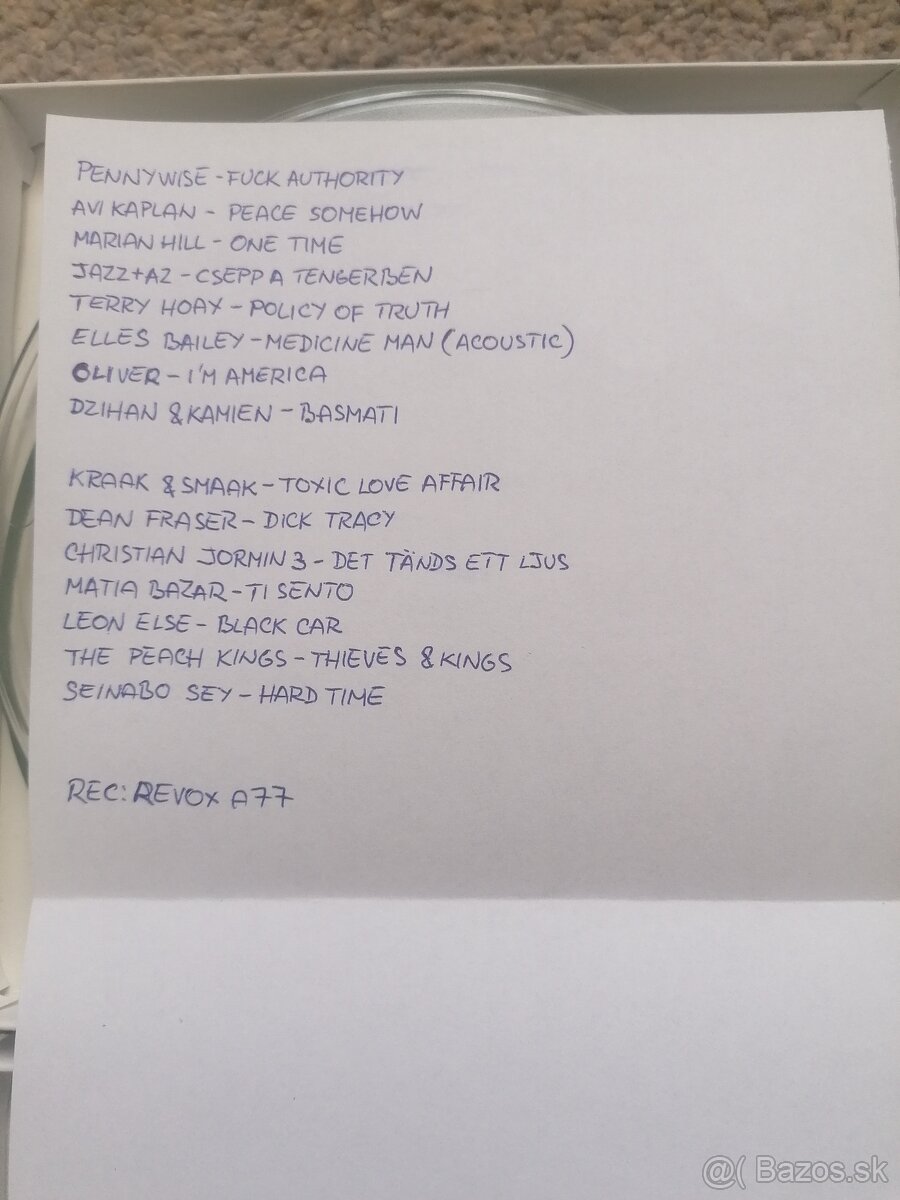 PENNYWISE - FUCK AUTHORITY
AVI KAPLAN - PEACE SOMEHOW
MARIAN HILL - ONE TIME
JAZZ+AZ - CSEPP A TENGERBEN
TERRY HOAX - POLICY OF TRUTH
ELLES BAILEY - MEDICINE MAN (ACOUSTIC)
OLIVER - I'M AMERICA
DZIHAN & KAMIEN - BASMATI
KRAAK & SMAAK - TOXIC LOVE AFFAIR
DEAN FRASER - DICK TRACY
CHRISTIAN JORMIN 3 - DET TÄNDS ETT LJUS
MATIA BAZAR - TI SENTO
LEON ELSE - BLACK CAR
THE PEACH KINGS - THIEVES & KINGS
SEINABO SEY - HARD TIME
REC: REVOX A77
@( Bazos.sk